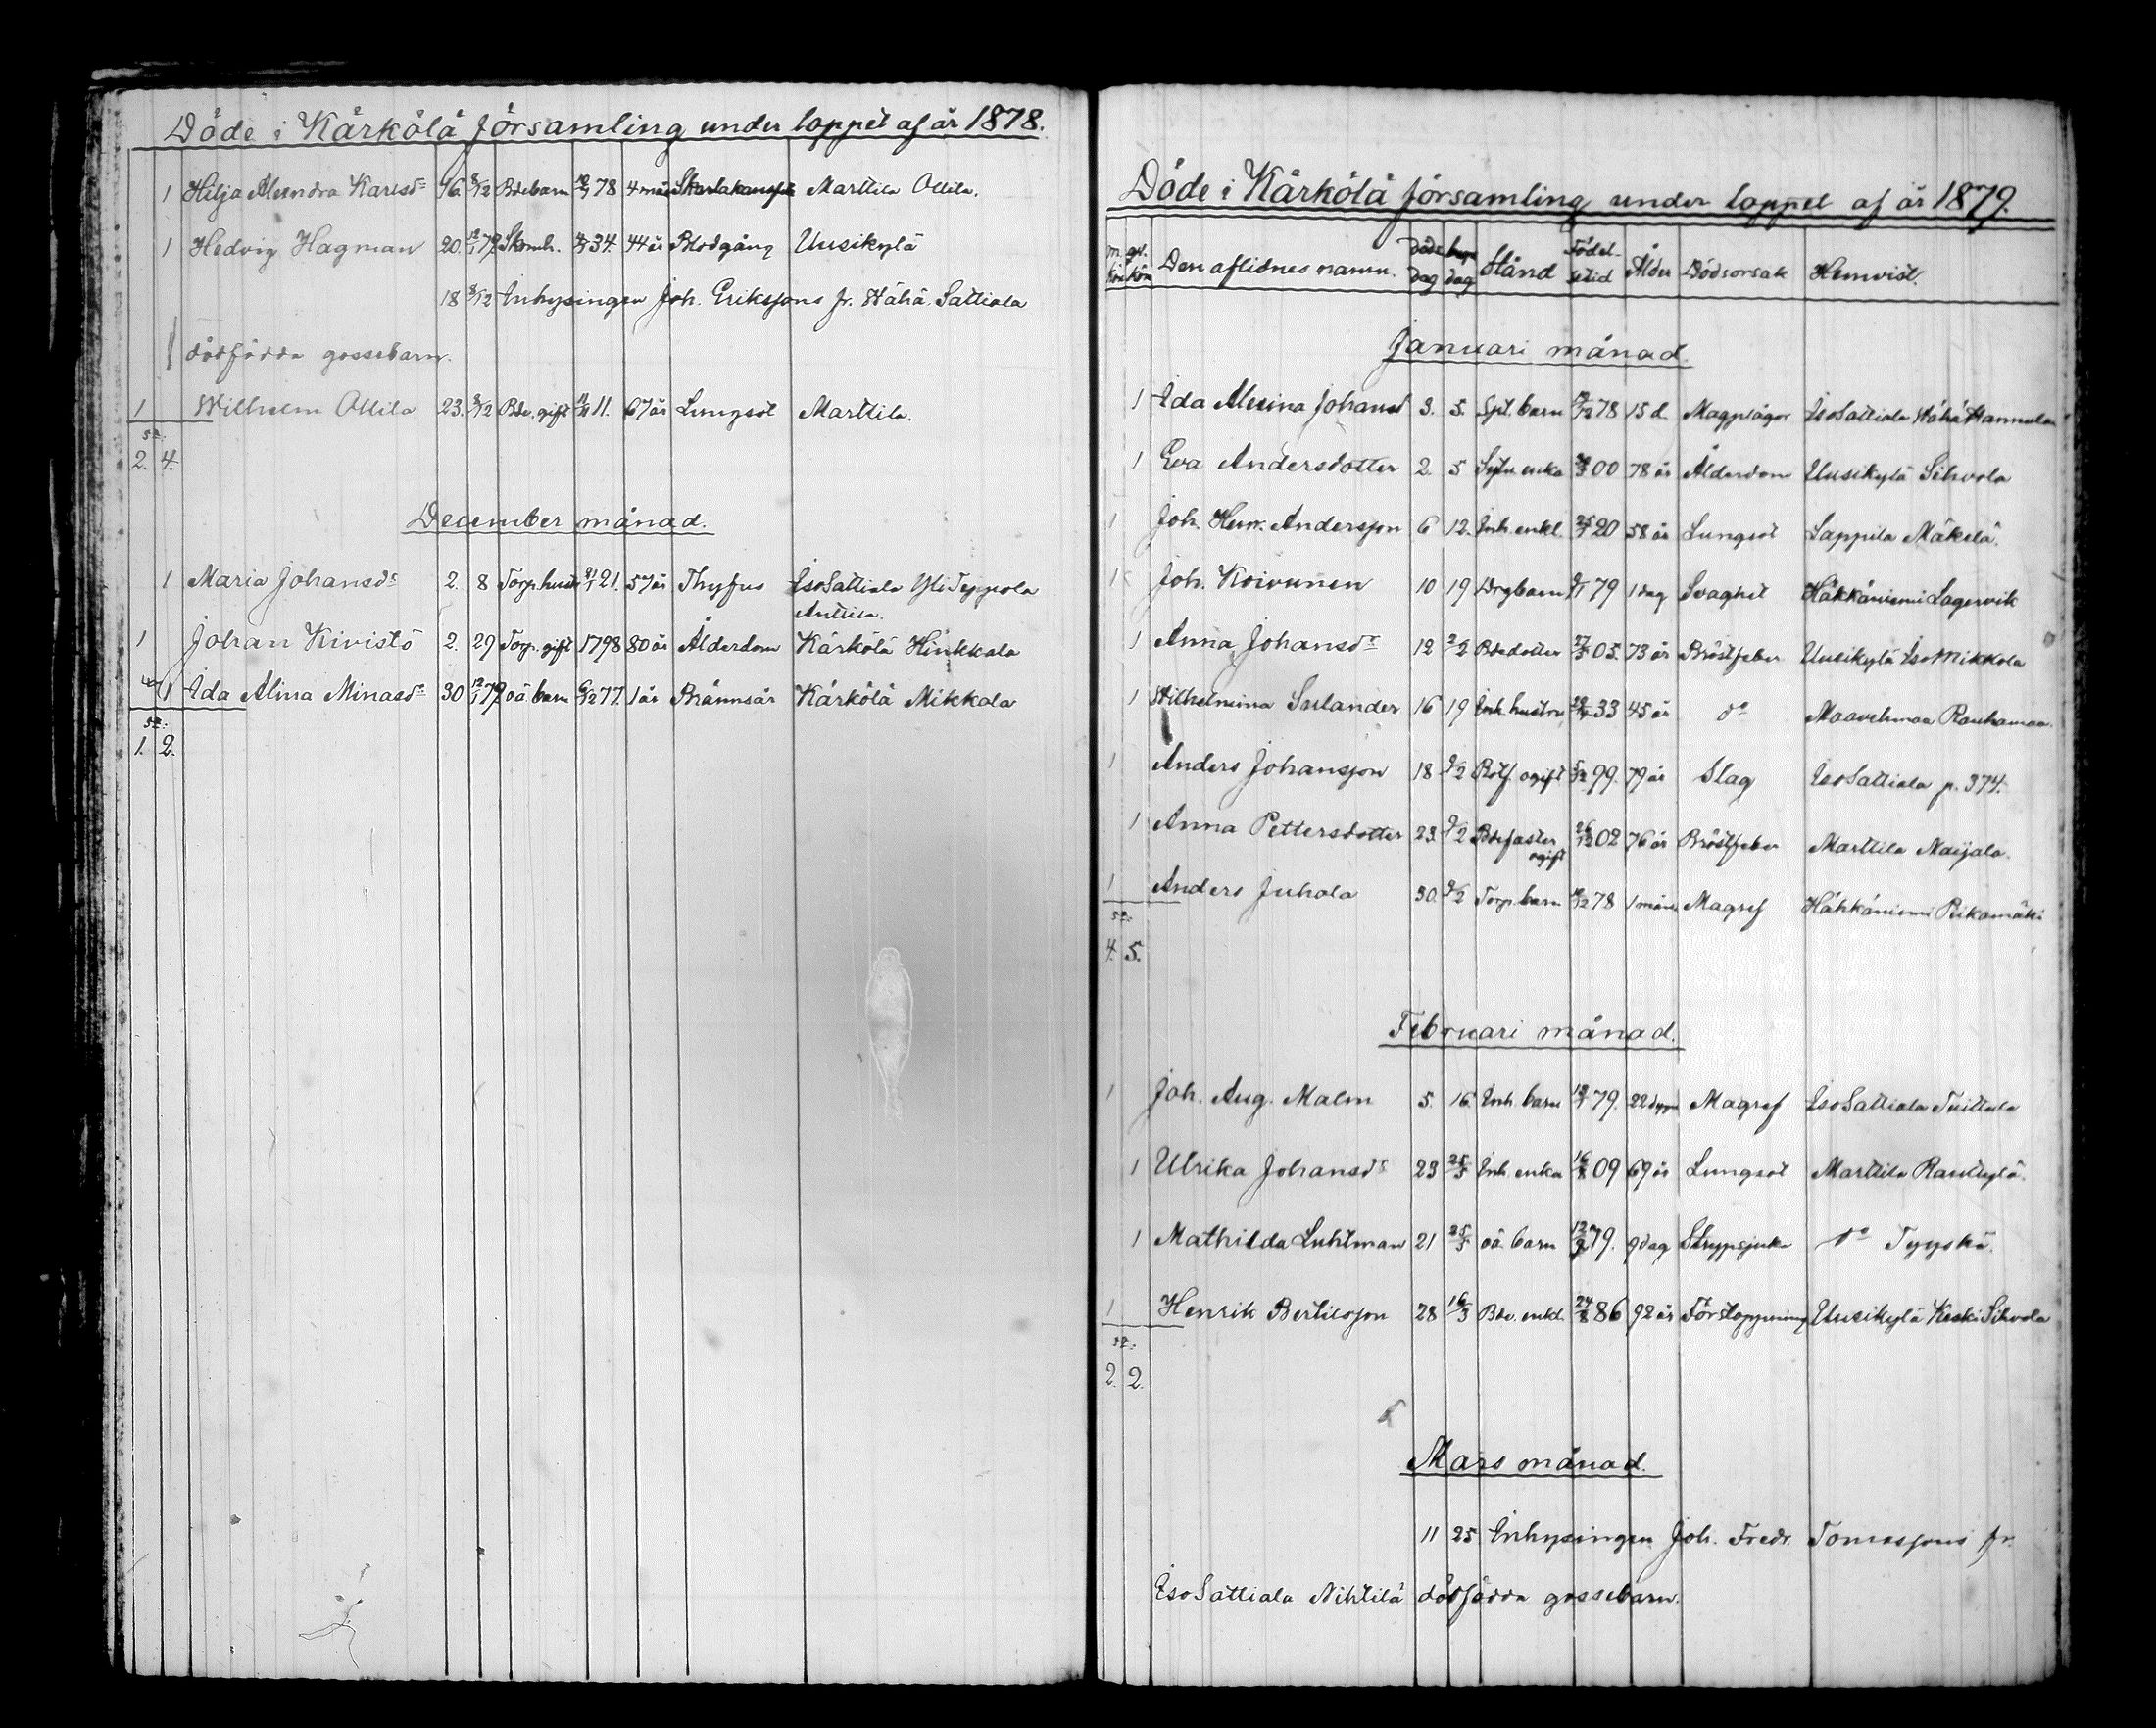 Döde i Kärkölä församling under loppet af år 1878.
1 Hilja Alexandra Karlsdr 16. 8/12 Bdebarn 78 4 mån Marttila Ollila.
1 Hedvig Hagman 20. 12/1 79 34. 44 år Blodgång Uusikylä
18 8/12 Inhysingen Joh. Erikssons fr. Vähä Sattiala
1 dödfödda gossebarn.
1 Wilhelm Ollila 23. 8/12 Bde. gift 11. 67 år Lungsot Marttila.
sa:
2. 4.
December månad.
1 Maria Johansdr 2. 8 Torp. hustr 21. 57 år Thyfus IsoSattiala Yli Teppola
Anttila.
1 Johan Kivistö 2. 29 Torp. gift 1798 80 år Ålderdom Kärkölä Hinkkala
1 Ida Alina Minasdr 30 12/1 79 oä barn 6/12 77. 1 år Brännsår Kärkölä Mikkola
sa:
1. 2.
Döde i Kärkölä församling under loppet af år 1879.
m. kön qv. kön Den aflidnes namn. döds dag begr dag Stånd Födelsetid Ålder Dödsorsak Hemvist.
Januari månad.
1 Ida Alexina Johansd 3. 5. Spt. barn 19/12 78 15 d. Magplågor IsoSattiala Vähä Hannula
1 Eva Andersdotter 2. 5 Sytn enka 00 78 år Ålderdom Uusikylä Sihvola
1 Joh. Henr. Andersson 6 12. Inh. enkl. 20 58 år Lungsot Lappila Mäkelä.
1 Joh. Koivunen 10 19 Drgbarn 9/1 79 1 dag Svaghet Häkkäniemi Lagervik
1 Anna Johansdr 12 2/2 Bdedotter 05. 73 år Bröstfeber Uusikylä Iso Mikkola
1 Wilhelmina Selander 16 19 Inh. hustru 33 45 år do Maavehmaa Rauhamaa.
1 Anders Johansson 18 9/2 Rotf. ogift 99. 79 år Slag IsoSattiala p. 374.
1 Anna Pettersdotter 23. 9/2 Bdefaster 26/12 02 76 år Bröstfeber Marttila Naijala.
ogift
1 Anders Juhola 30. 9/2 Torp. barn 78 1 mån. Magref Häkkäniemi Pikamäki
sa:
4. 5.
Februari månad.
1 Joh. Aug. Malm 5. 16. Inh. barn 79. 22 dagar Magref IsoSattiala Tuittula
1 Ulrika Johansdr 23 25/3 Inh. enka 16/8 09 69 år Lungsot Marttila Rautkylä.
1 Mathilda Luhtman 21 25/3 oä. barn 12/2 79. 9 dag Strypsjuka do Tyyskä.
1 Henrik Bertilsson 28 16/3 Bde. enkl. 24/8 86 92 år Förstoppning Uusikylä Keski Sihvola
sa:
2. 2.
Mars månad.
11 25 Inhysingen Joh. Fredr. Tomassons fr.
IsoSattiala Nihtilä dödfödda gossebarn.